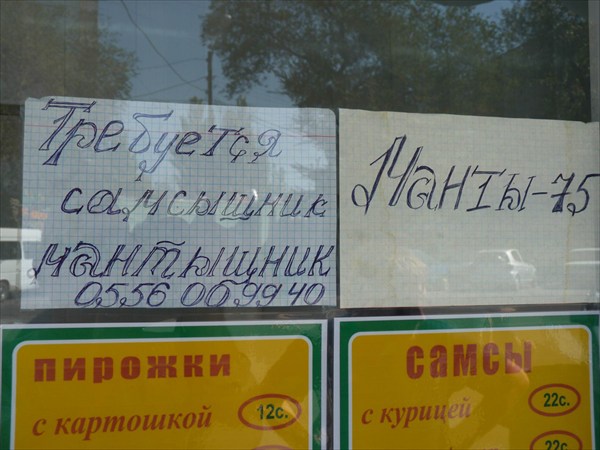 Требуется
самсыщник
мантыщник
0556 06 99 40
Манты-75
пирожки
с картошкой 12с.
самсы
с курицей 22с.
22с.